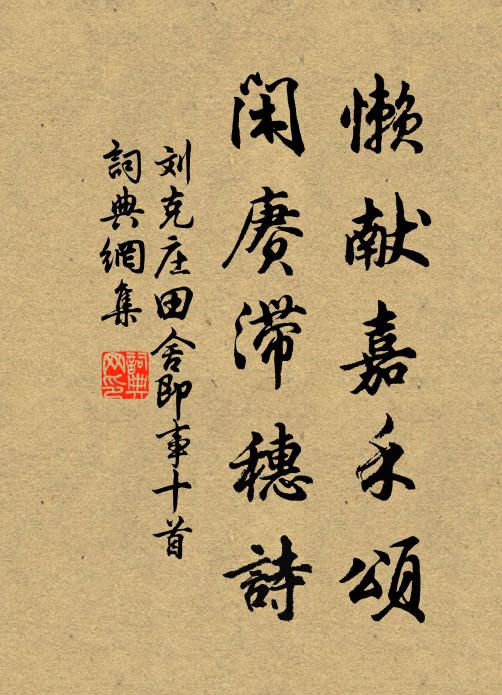 懒献嘉禾頌
闲赓滞穗詩
刘克庄田舍即事十首
詞典網集
詞典网印